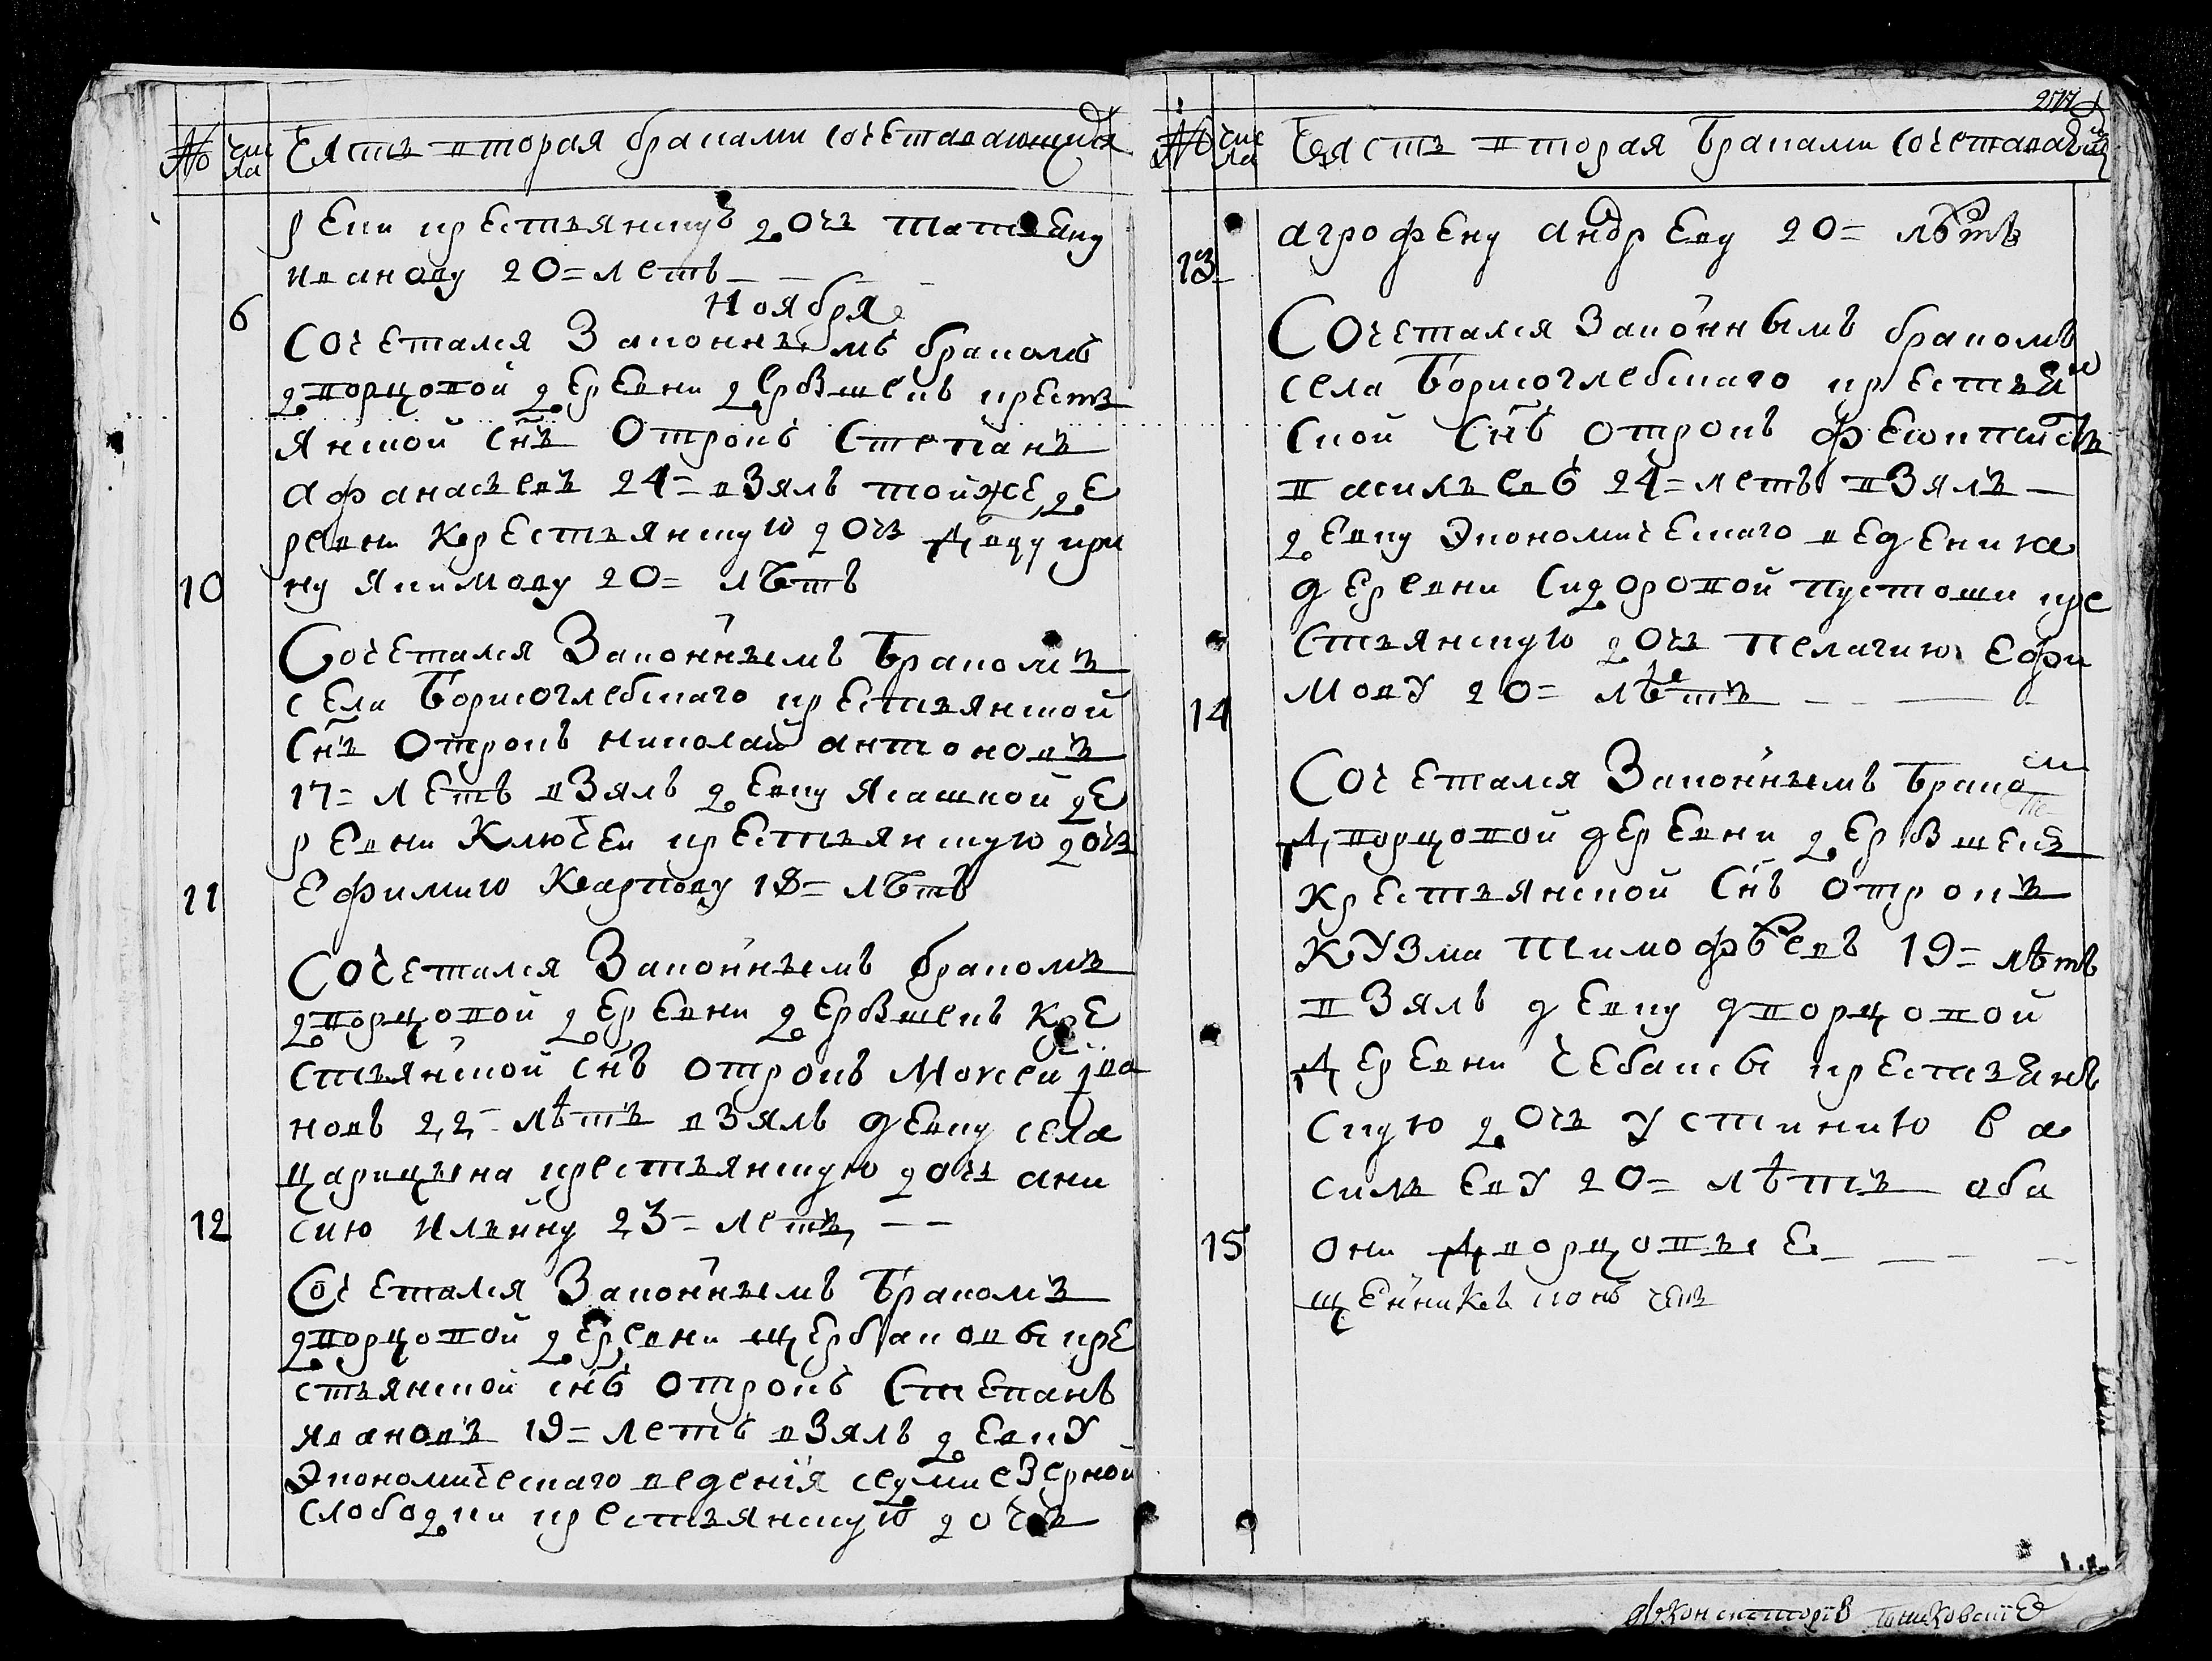 № чис ла Часть вторая браками сочетавающихся
ревни крестьянскую дочь татьяну
иванову 20= летъ
Ноября
6
Сочетался Законнымъ бракомъ
дворцовой деревни дербышекъ кресть
янской снъ отрокъ Степанъ
афанасьевъ 24= взялъ тойже де
ревни крестьянскую дочь девку ири
10 ну якимову 20= лѣтъ
Сочетался Законнымъ бракомъ
села борисоглебскаго крестьянской
снъ отрокъ николай антоновъ
17= летъ взялъ девку ясашной де
ревни Ключей крестьянскую дочь
11 ефимию Карпову 18= лѣтъ
Сочетался Законнымъ бракомъ
дворцовой деревни дербышекъ кре
стьянской снъ отрокъ Моисей ива
новъ 22= лѣтъ взялъ девку села
царицына крестьянскую дочь ани
12 сию ильину 23= летъ
Сочетался Законнымъ бракомъ
дворцовой деревни щербаковы кре
стьянской снъ отрокъ Степанъ
ивановъ 19= летъ взялъ девку
Экономическаго ведения седмиезерной
слободки крестьянскую дочь
№ чис ла Часть вторая браками
агрофену андрееву 20= лѣтъ
13
Сочетался Законнымъ бракомъ
села борисоглебскаго крестьян
ской снъ отрокъ феоктистъ
васильевъ 24= летъ взялъ
девку Экономическаго ведения
деревни сидоровой пустоши кре
стьянскую дочь пелагию ефи
мову 20= лѣтъ
14
Сочетался Законнымъ бракомъ
дворцовой деревни дербышекъ
крестьянской снъ отрокъ
Кузма тимофѣевъ 19= лѣтъ
взялъ девку дворцовой
деревни чебаксы крестьянь
скую дочь устинию ва
сильеву 20= лѣтъ оба
15 они дворцовые
щенникъ